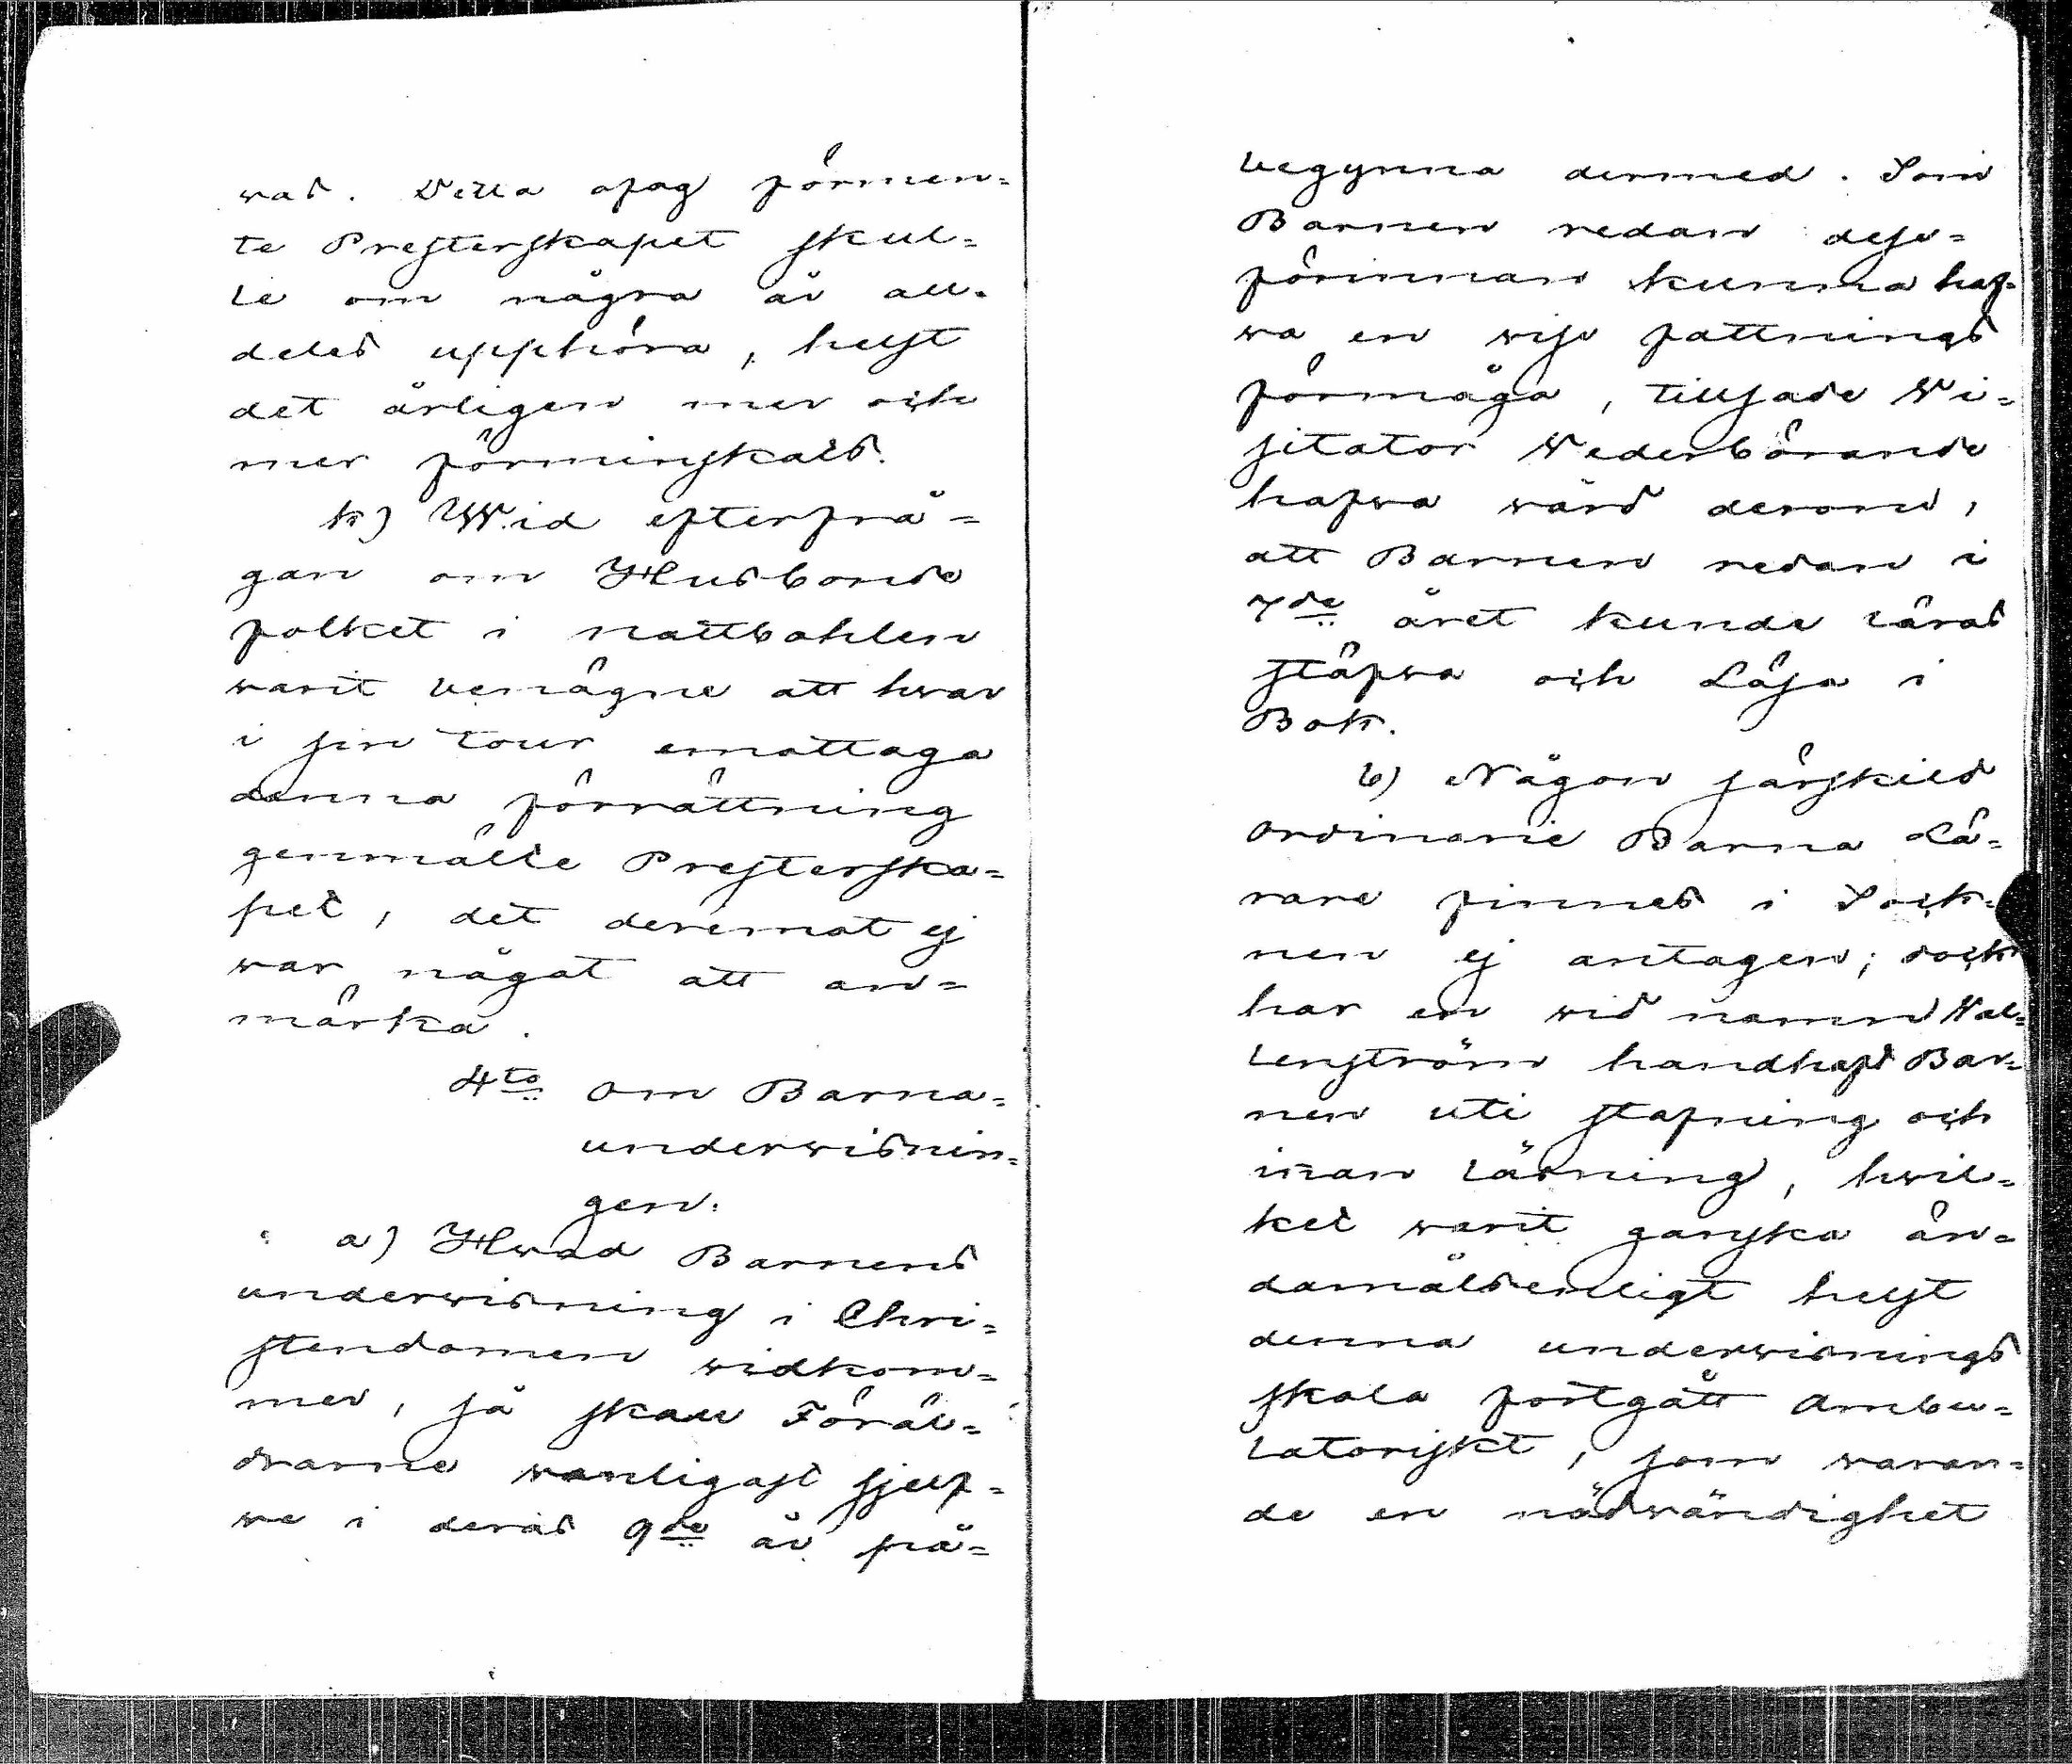 ras. Detta ofog förmen=
te Presterskapet skul=
le om några år all=
deles upphöra, helst
det årligen mer och
mer förminskats.
k) Wid efterfrå=
gan om Husbonde
folket i nattbohlen
warit benägne att hwar
i sin tour emottaga
denna förrättning
genmälte Presterska=
pet, det deremot ej
war något att an=
märka.
4to om Barna=
underwisnin=
gen.
a) Hwad Barnens
underwisning i Chri=
stendomen widkom=
mer, så skall Föräl=
drarne wanligast sjelf=
we i deras 9de år på=
begynna dermed. Som
Barnen redan dess=
förinnan kunna haf=
wa en wiss fattnings
förmåga, tillsade Wi=
sitator Wederbörande
hafwa wård derom,
att Barnen redan i
7de året kunde läras
stafwa och Läsa i
Bok.
b) Någon särskild
ordinarie Barna Lä=
rare finnes i Sock=
nen ej antagen; dock
har en wid namn Wal=
lenström handhaft Bar=
nen uti stafning och
innan läsning, hwil=
ket warit ganska än=
damålsenligt helst
denna underwisnings
skola fortgått Ambu=
latoriskt, som waran=
de en nödwändighet